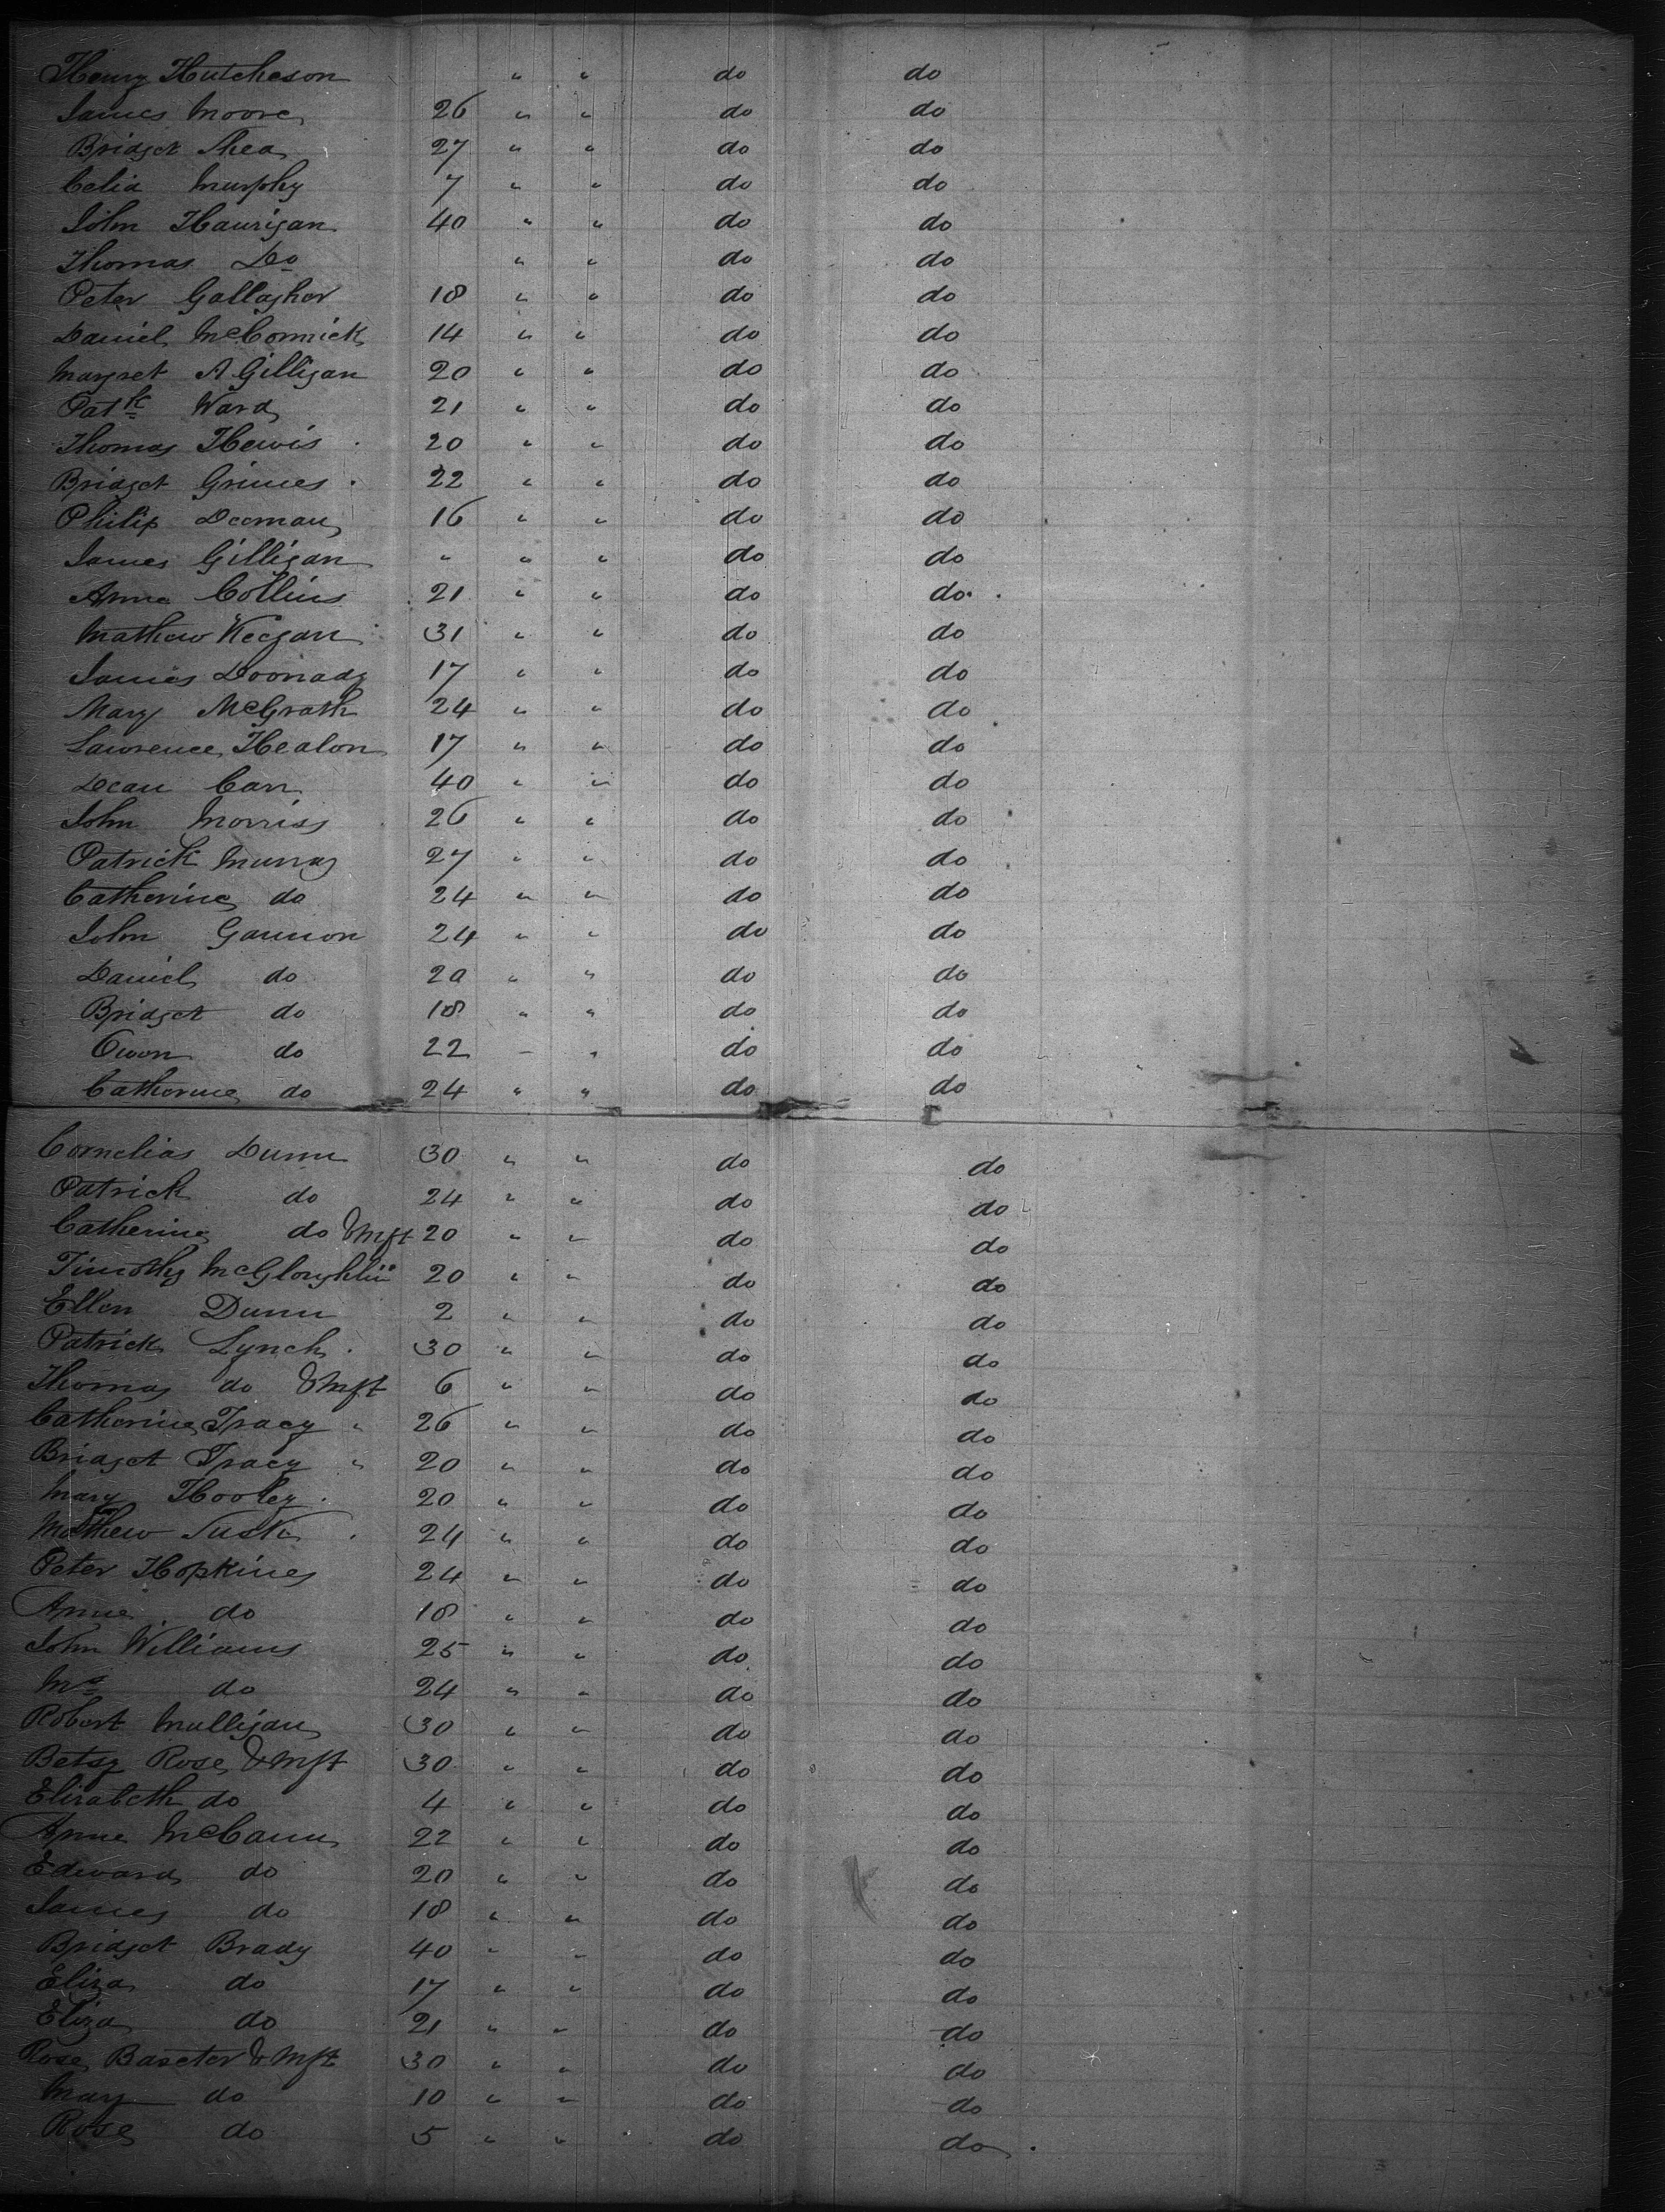 Henry Hutcheson " " do do
James Moore 26 " " do do
Bridget Shea 27 " " do do
Celia Murphy 7 " " do do
John Haurigan 40 " " do do
Thomas Do " " do do
Peter Gallagher 18 " " do do
Daniel McCormick 14 " " do do
Margret A Gilligan 20 " " do do
Patk Ward 21 " " do do
Thomas Hewis 20 " " do do
Bridget Grimes 22 " " do do
Philip Deeman 16 " " do do
James Gilligan " " " do do
Anne Collins 21 " " do do
Mathew Keegan 31 " " do do
James Doonady 17 " " do do
Mary McGrath 24 " " do do
Lawrence Healon 17 " " do do
Dean Carr 40 " " do do
John Morriss 26 " " do do
Patrick Murray 27 " " do do
Catherine do 24 " " do do
John Gannon 24 " " do do
Daniel do 20 " " do do
Bridget do 18 " " do do
Owen do 22 " " do do
Catherine do 24 " " do do
Cornelias Dunn 30 " " do do
Patrick do 24 " " do do
Catherine do & Inft 20 " " do do
Timothy McGloughlin 20 " " do do
Ellen Dunn 2 " " do do
Patrick Lynch 30 " " do do
Thomas do & Inft 6 " " do do
Catherine Tracy " 26 " " do do
Bridget Tracy " 20 " " do do
Mary Hooley 20 " " do do
Mathew Tusk 24 " " do do
Peter Hopkines 24 " " do do
Anne do 18 " " do do
John Williams 25 " " do do
Mrs do 24 " " do do
Robert Mulligan 30 " " do do
Betsy Rose & Inft 30 " " do do
Elizabeth do 4 " " do do
Anne McCann 22 " " do do
Edward do 20 " " do do
James do 18 " " do do
Bridget Brady 40 " " do do
Eliza do 17 " " do do
Eliza do 21 " " do do
Rose Baxeter & Inft 30 " " do do
Mary do 10 " " do do
Rose do 5 " " do do